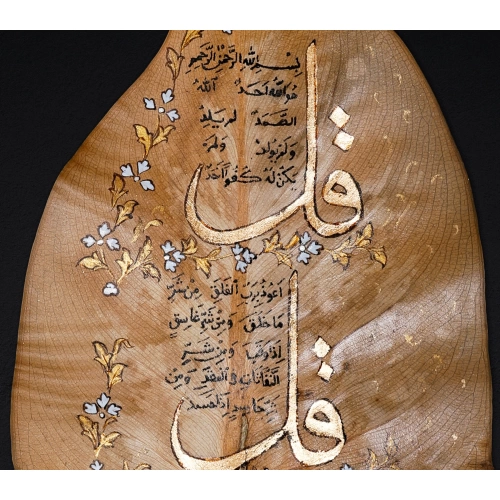 بسم الله الرحمن الرحيم
قل
هو الله احد الله
الصمد لم يلد
ولم يولد ولم
يكن له كفوا احد
قل
اعوذ برب الفلق من شر
ما خلق ومن شر غاسق
اذا وقب ومن شر
النفاثات في العقد ومن
شر حاسد اذا حسد